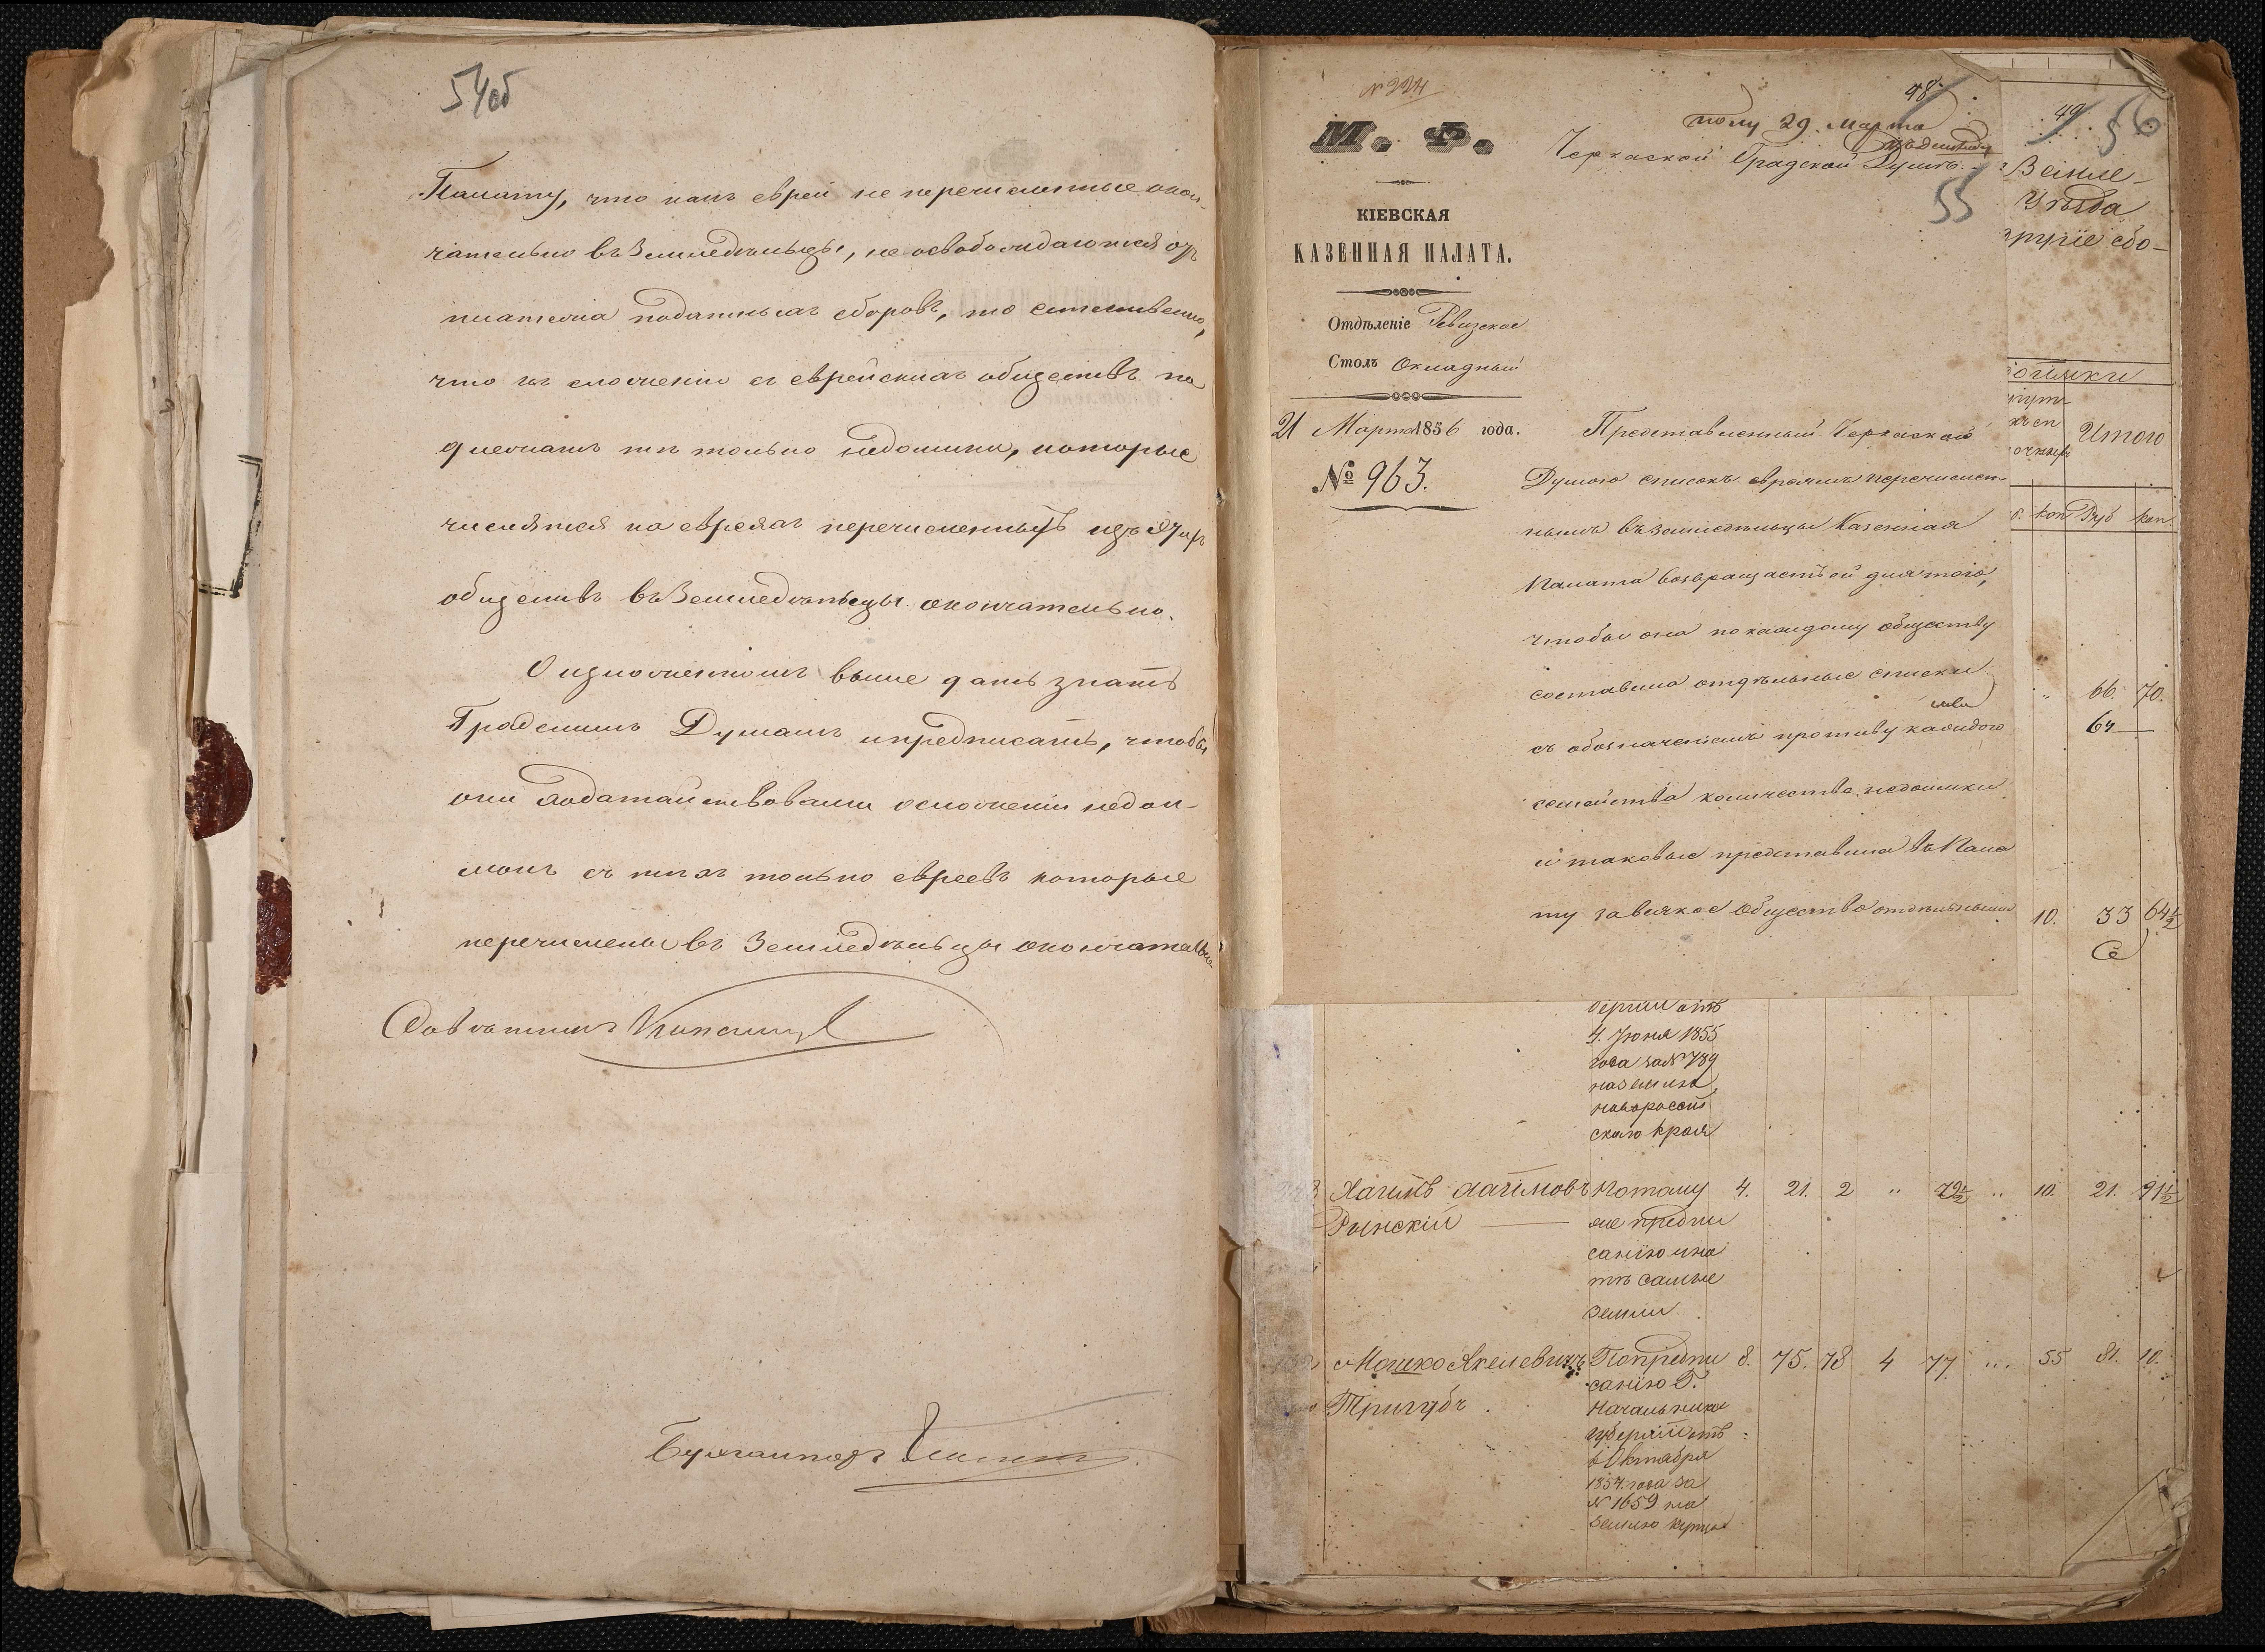 54об
Палату, что какъ евреи не перечисленные окон-
чательно въ Земледельцы, не освобождаются отъ
платежа податныхъ сборовъ, то естественно,
что къ сложенію съ еврейскихъ обществъ по
длежатъ тѣ только недоимки, которые
числятся на евреяхъ перечисленныхъ изъ этихъ
обществъ въ Земледѣльцы окончательно.
О изложенномъ выше дать знать
Градскимъ Думамъ и предписать, чтобы
они ходатайствовали о сложеніи недои-
мокъ съ тѣхъ только евреевъ которые
перечислены въ Земледѣльцы окончательно
Совѣтникъ
Бухгалтеръ
№ 224
М. Ф.
КІЕВСКАЯ
КАЗЕННАЯ ПАЛАТА.
Отдѣленіе Ревизское
Столъ Окладный
21 Марта 1856 года.
№ 963.
48
полу 29 Марта
Черкаской Градской Думѣ.
55
Представленный Черкаской
Думою списокъ евреямъ перечислен
нымъ въ земледѣльцы Казенная
Палата возвращаетъ ей для того,
чтобы она по каждому обществу
составила отдѣльные списки
съ обозначеніемъ противу каждого
семейства количество недоимки
и таковые представила въ Пала
ту за всякое Общество отдѣльными
49 56
Земле-
Уѣзда
другіе сбо-
Итого
коп Руб коп.
" 66. 70.
64 —
10. 33 64½
берніи отъ
4. Іюня 1855
года за № 789
на земли
новороссій
скаго края
Хаимъ Хаимовъ Потому 4. 21. 2 " 72½ " 10. 21. 91½
Рынскій — же предпи
санію и на
тѣ самые
земли
Мошко Акелевичъ По предпи 8. 75. 78 4 77 " 55 81. 10.
Тригубъ санію Г.
Начальника
губерніи отъ
6 Октября
1854. года за
№ 1659 на
землю купца